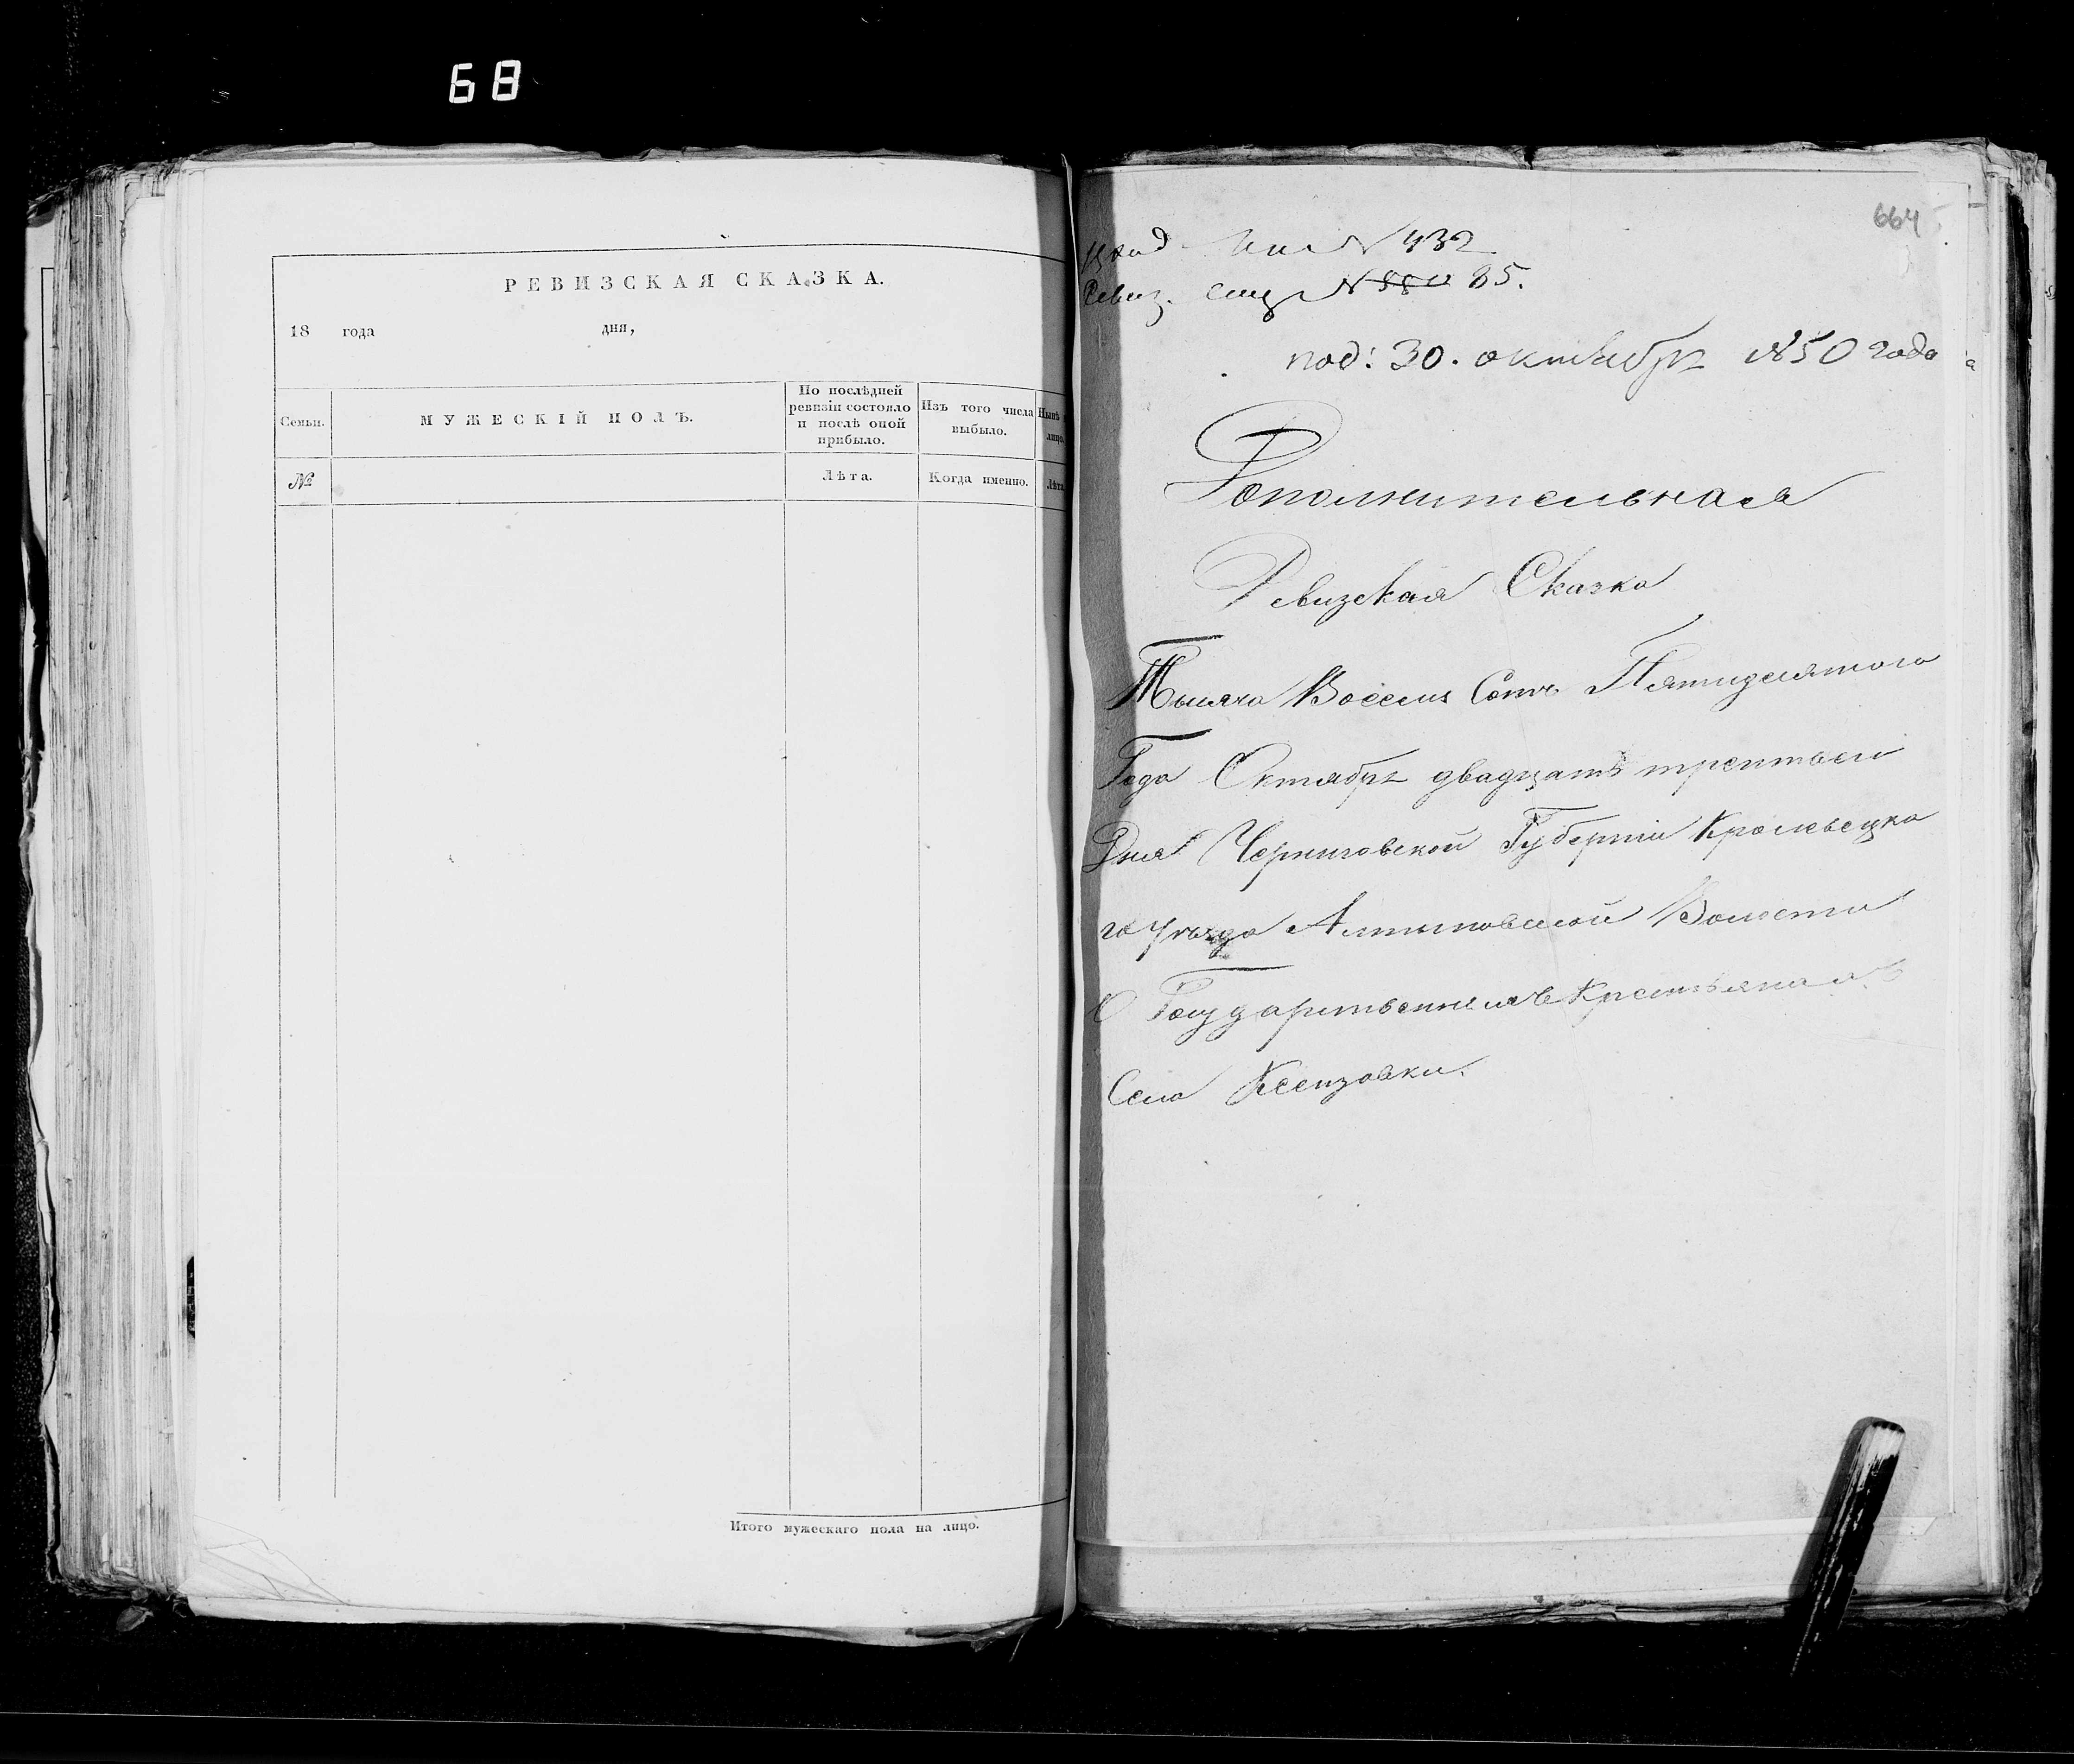 68
РЕВИЗСКАЯ СКАЗКА.
18 года дня,
Семьи.
МУЖЕСКІЙ ПОЛЪ.
По послѣдней
ревизіи состояло
и послѣ оной
прибыло.
Изъ того числа
выбыло.
№
Лѣта.
Когда именно.
Итого мужескаго пола на лицо.
664
№ 432
№ 35.
под: 30. октября 1850 года
Дополнительная
Ревизская Сказка
Тысяча Восемь Сотъ Пятидесятого
Года Октября двадцать третьего
Дня Черниговской Губерніи Кролевецка
го Уезда Алтиновской Волости
О Государственныхъ Крестьянахъ
Села Ксензовки.